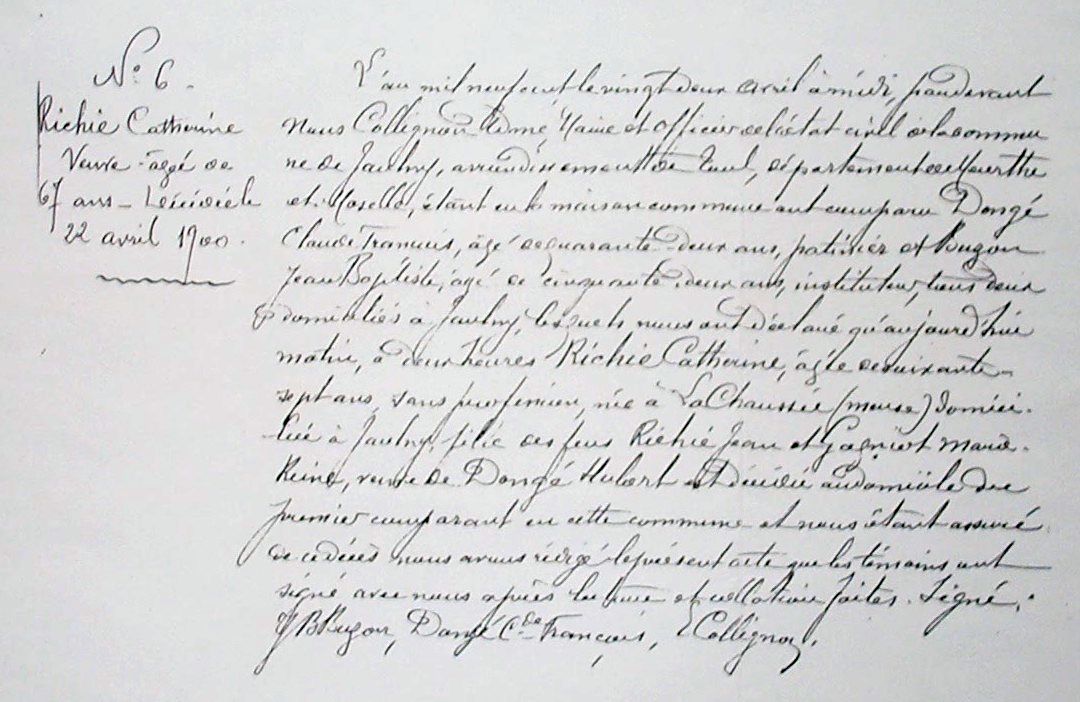 N° 6.
Richié Catherine
Veuve âgé de
67 ans - Décédé le
22 avril 1900.
L'an mil neuf cent le vingt deux avril à midi, par devant
Nous Collignon Edmé, Maire et Officier de l'état civil de la commu
ne de Jaulny, arrondissement de Toul, département de Meurthe
et Moselle, étant en la maison commune ont comparu Dongé
Claude François, âgé de quarante-deux ans, et Rugon
Jean Baptiste, âgé de cinquante deux ans, instituteur, tous deux
domiciliés à Jaulny, lesquels nous ont déclaré qu'aujourd'hui
matin, à deux heures Richié Catherine, âgée de soixante-
sept ans, sans profession, née à La Chaussée (meuse) domici-
liée à Jaulny, fille des feus Richié Jean et Gagniot Marie-
Reine, veuve de Dongé Hubert est décédée au domicile du
premier comparant en cette commune et nous étant assuré
de ce décès nous avons rédigé le présent acte que les témoins ont
signé avec nous après lecture et collation faites. Signé:
JB Rugon, Dongé Cde François, E Collignon.